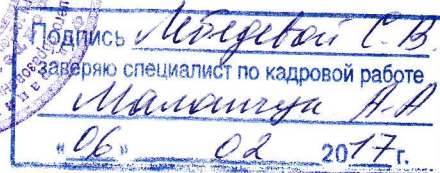 Подпись Лебедевой С.В.
заверяю специалист по кадровой работе
А.А
"06" 02 2017 г.